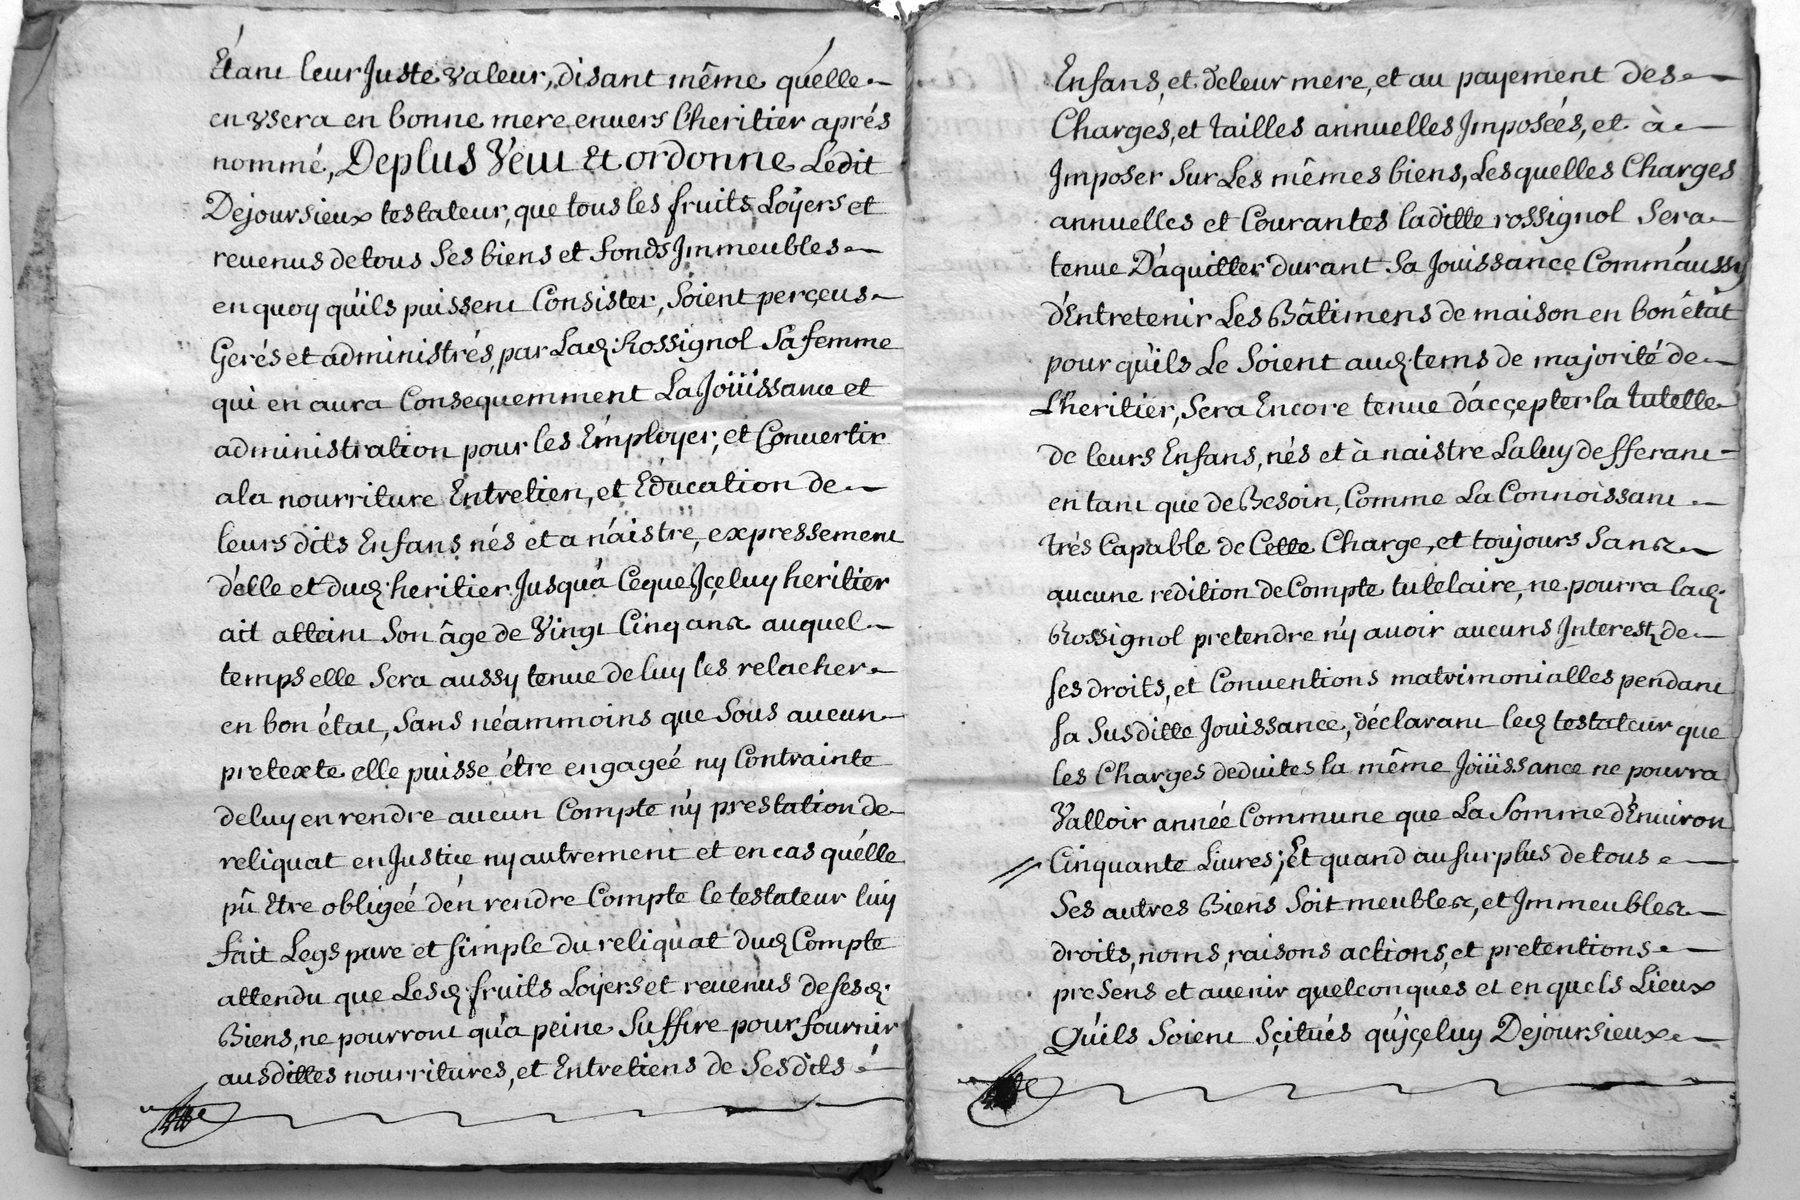 Etant leur Juste valeur, disant même qu'elle
en vsera en bonne mere enuers l'heritier aprés
nommé, Deplus Veut Et ordonne Ledit
Dejoursieux testateur, que tous les fruits Loÿers et
reuenus de tous Ses biens et fonds Jmmeubles
en quoy qu'ils puissent Consister, Soient perçeus
Gerés et administrés, par Lad: Rossignol Sa femme
qui en aura Consequemment La Joüissance et
administration pour les Employer, et Conuertir
a la nourriture Entretien, et Education de
leurs dits Enfans nés et a náistre, expressement
d'elle et dud: heritier Jusqu'á Ceque Jçeluy heritier
ait atteint Son âge de Vingt Cinq ans auquel
temps elle Sera aussy tenue de luy les relacher
en bon état, Sans néammoins que Sous aucun
pretexte elle puisse étre engageé ny Contrainte
de luy en rendre aucun Compte n'y prestation de
reliquat en Justice ny autrement et en cas qu'elle
pû Etre obligeé d'en rendre Compte le testateur luy
fait Legs pure et simple du reliquat dud Compte
attendu que Lesd: fruits Loÿers et reuenus de sesd:
Biens, ne pourront qu'a peine Suffire pour fournir
ausdittes nourritures, et Entretiens de Sesdits
Enfans, et de leur mere, et au payement des
Charges, et tailles annuelles Jmposées, et à
Jmposer Sur Les mêmes biens, Lesquelles Charges
annuelles et Courantes laditte rossignol Sera
tenue D'aquitter durant Sa Jouissance Comm'aussy
d'Entretenir Les Bâtimens de maison en bon êtat
pour qu'ils Le Soient aud: tems de majorité de
L'heritier, Sera Encore tenue d'acçepter la tutelle
de leurs Enfans, nés et à naistre La luy defferant
en tant que de Besoin, Comme La Connoissant
trés Capable de Cette Charge, et toujours Sans
aucune redition de Compte tutelaire, ne pourra lad:
Rossignol pretendre n'y auoir aucuns Jnterest de
ses droits, et Conuentions matrimonialles pendant
sa Susditte Jouissance, déclarant led testateur que
les Charges deduites la même Joüissance ne pourra
Valloir année Commune que La Somme d'Enuiron
Cinquante Liures; Et quand au surplus de tous
Ses autres Biens Soit meubles, et Jmmeubles
droits, noms, raisons actions, et pretentions
presens et auenir quelconques et en quels Lieux
Qu'ils Soient Sçitués qu'jçeluy Dejoursieux